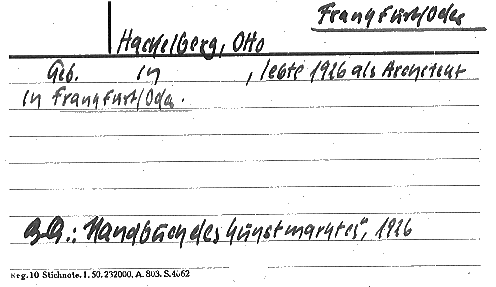 Frankfurt/Oder
Hachelberg, Otto
Geb. in , lebte 1926 als Architekt
in Frankfurt/Oder.
"Handbuch des Kunstmarktes", 1926
Reg. 10 Stichnote. I. 50. 232000. A. 803. S. 4662